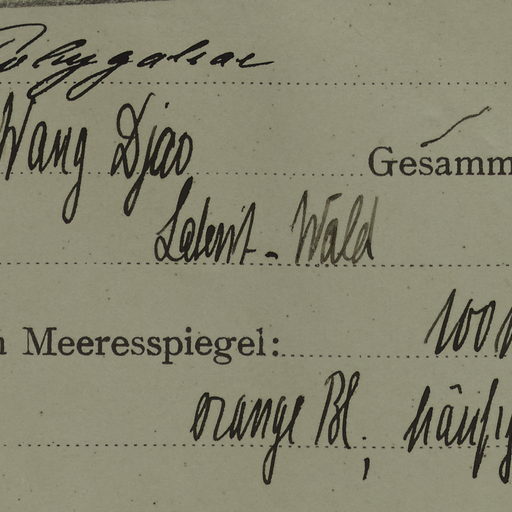 Polygalac
Wang Djao
Gesamm
Laterit - Wald
Meeresspiegel: 100
orange Bl, häufig